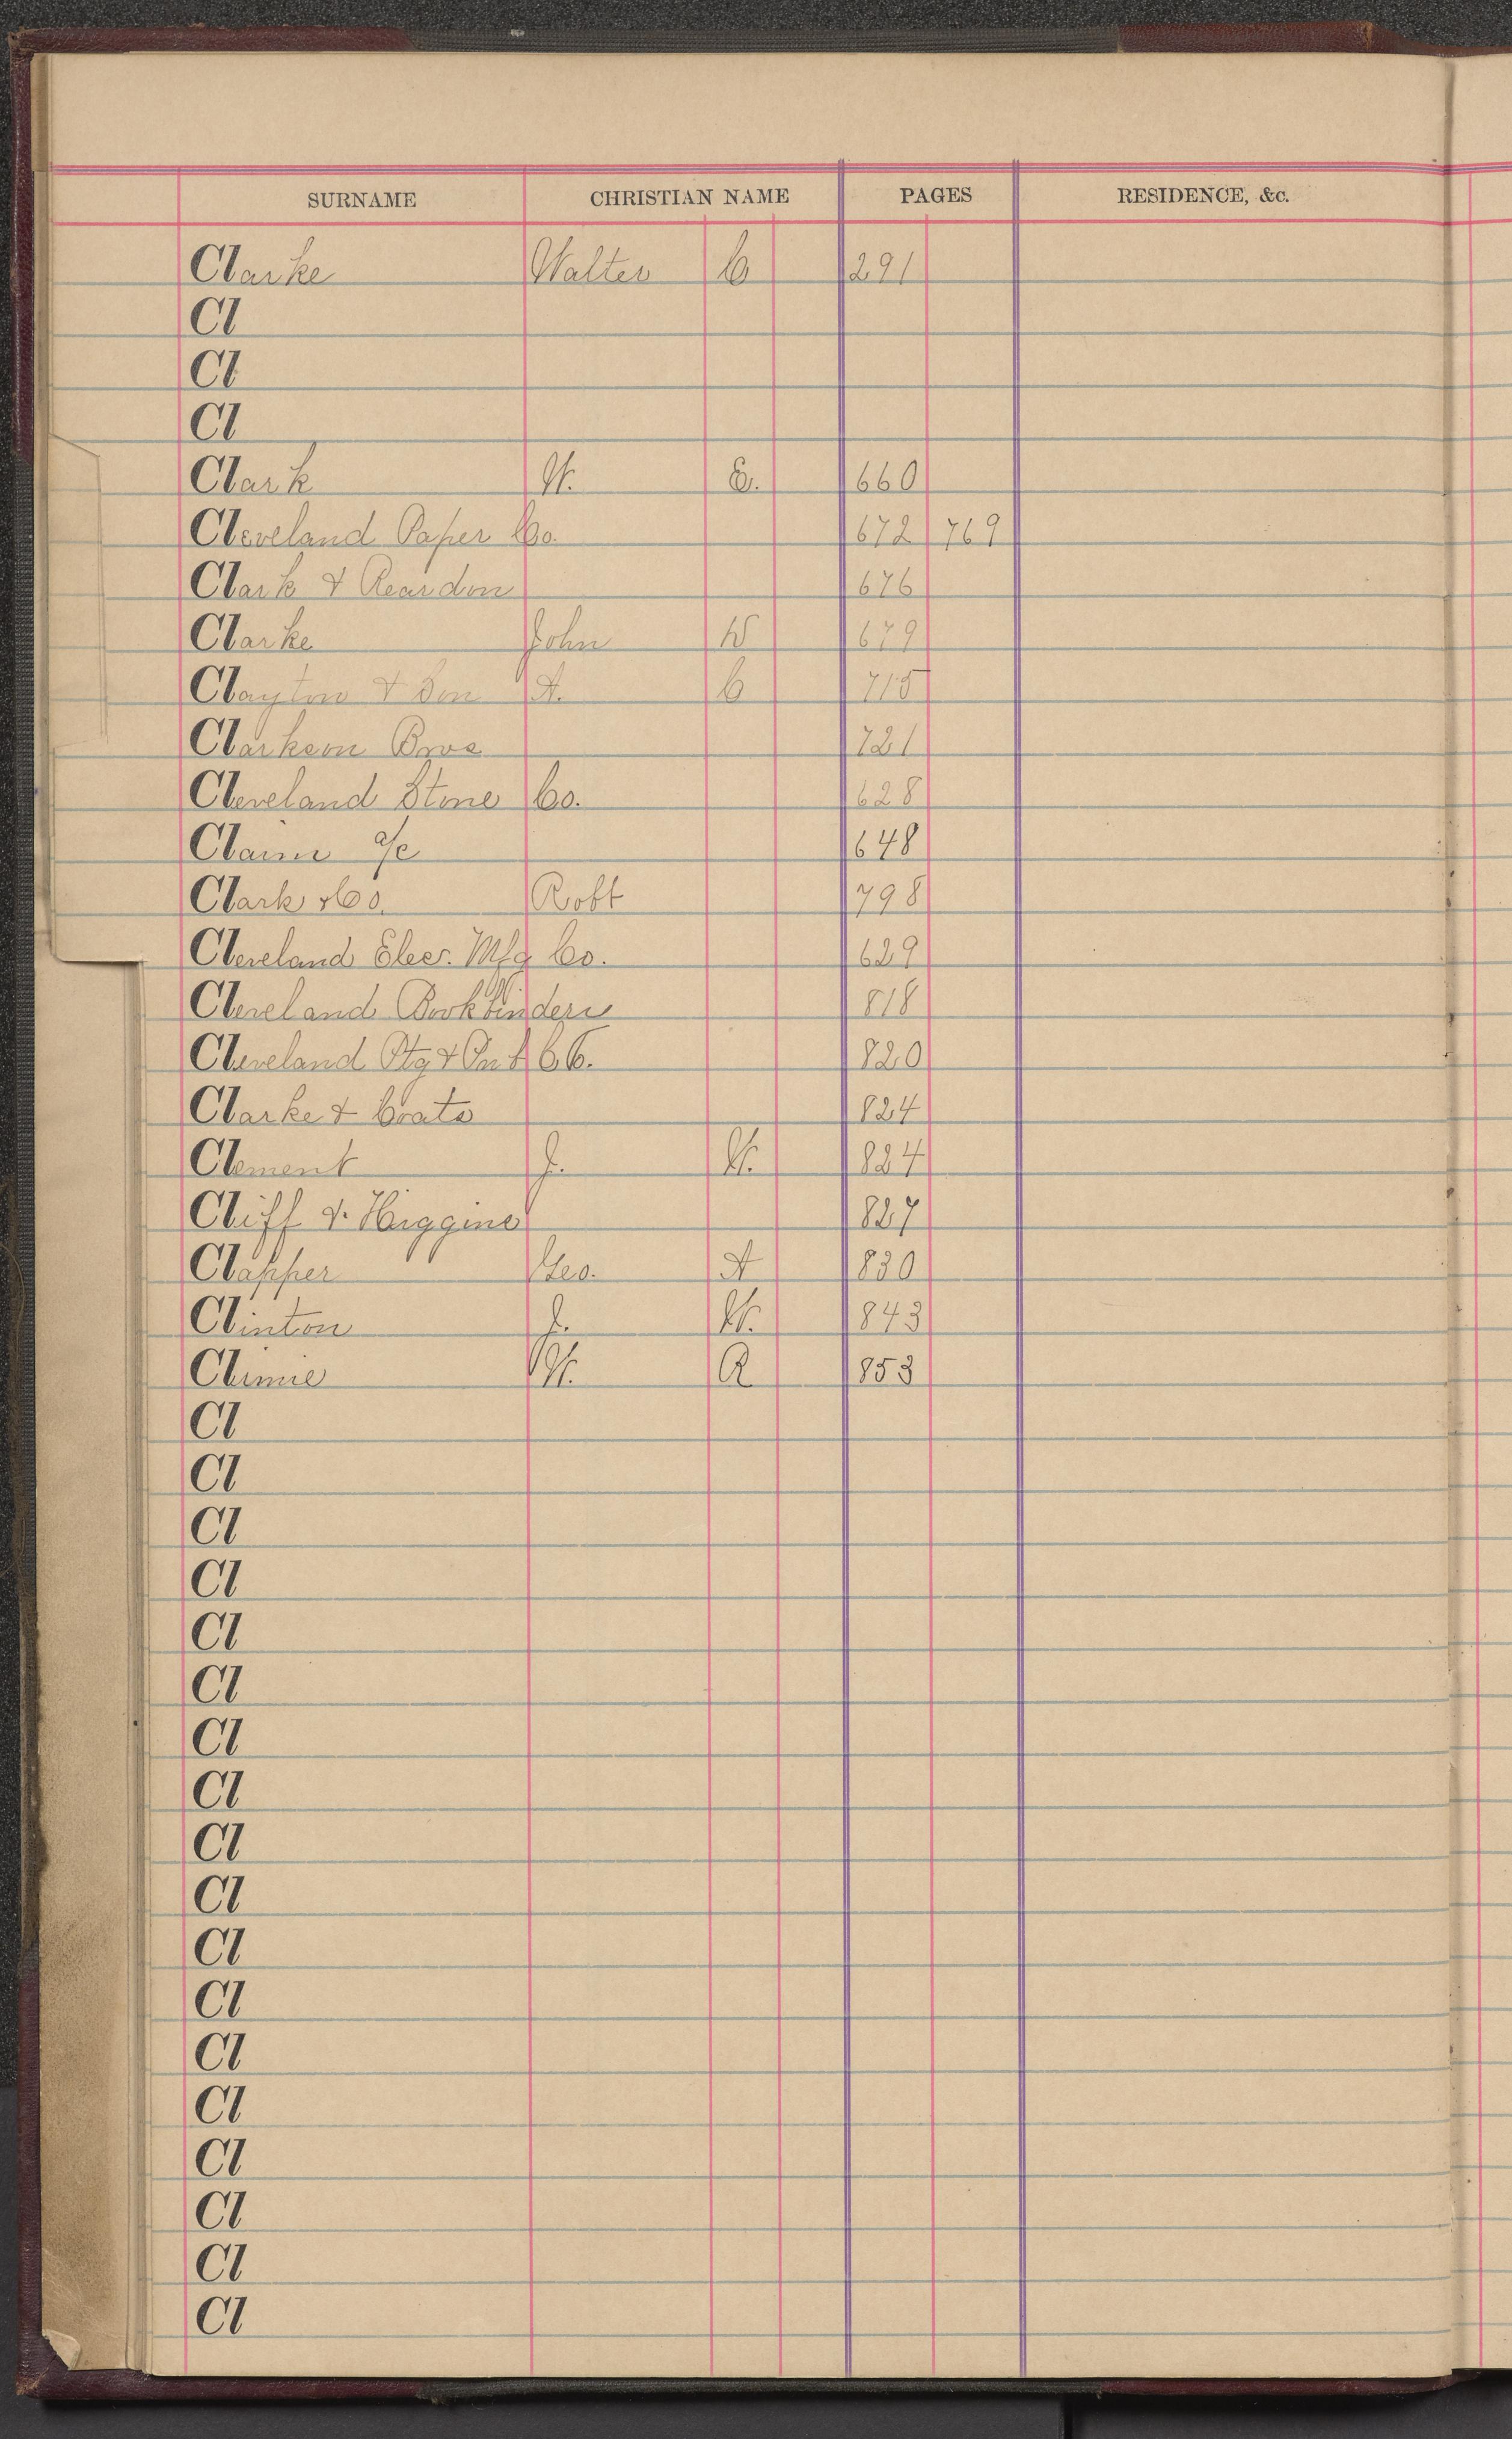 SURNAME CHRISTIAN NAME PAGES RESIDENCE, &c.
Clarke Walter C 291
Cl
Cl
Cl
Clark W. E. 660
Cleveland Paper Co. 672 769
Clark & Reardon 676
Clarke John W 679
Clayton & Son A. C 715
Clarkson Bros 721
Cleveland Stone Co. 628
Claim a/c 648
Clark & Co. Robt 798
Cleveland Elec. Mfg Co. 629
Cleveland Bookbindery 818
Cleveland Ptg & Pub Co. 820
Clarke & Coats 824
Clement J. W. 824
Cliff & Higgins 827
Clapper Geo. A 830
Clinton J. W. 843
W. A 853
Cl
Cl
Cl
Cl
Cl
Cl
Cl
Cl
Cl
Cl
Cl
Cl
Cl
Cl
Cl
Cl
Cl
Cl